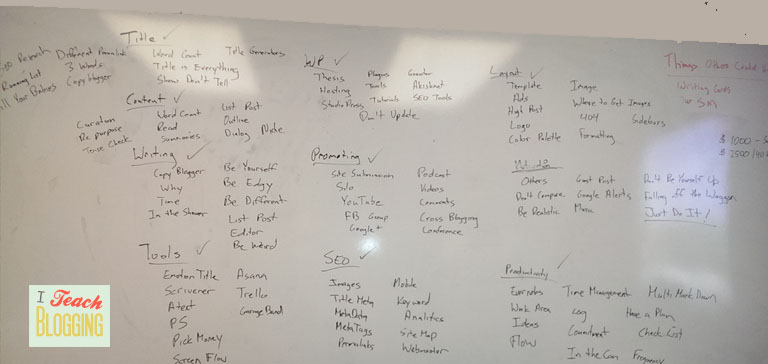 Title ✓
Research
Different Permalink
3 Words
Copyblogger
Running List
Your Babies
Word Count
Title is Everything
Show Don't Tell
Title Generators
Content ✓
Curation
Re purpose
Tense Check
Word Count
Read
Summaries
List Post
Outline
Dialog Note
Writing ✓
Copy Blogger
Why
Time
In the Shower
Be Yourself
Be Edgy
Be Different
List Post
Editor
Be Weird
Tools ✓
Emotion Title
Scrivener
Atext
PS
Pick Money
Screen Flow
Asana
Trello
Garage Band
WP ✓
Thesis
Hosting
StudioPress
Plugins
Tools
Tutorials
Don't Update
Akismet
SEO Tools
Promoting ✓
Site Submission
Silo
YouTube
FB Group
Google+
Podcast
Videos
Comments
Cross Blogging
Conference
SEO ✓
Images
Title Meta
MetaData
MetaTags
Permalinks
Mobile
Keyword
Analytics
Site Map
Webmaster
Layout ✓
Template
Ads
High Post
Logo
Color Palette
Image
Where to Get Images
404
Sidebars
Formatting
Others
Don't Compare
Be Realistic
Guest Post
Google Alerts
Music
Don't Be Yourself Up
Falling off the Waggon
Just Do It!
Productivity ✓
Evernotes
Work Area
Ideas
Flow
Time Management
Log
Commitment
In the Can
Multi Mark Down
Have a Plan
Check List
Frequency
Things Other Could
Writing
SM
$ 1000 -
$ 2500
I Teach
BLOGGING